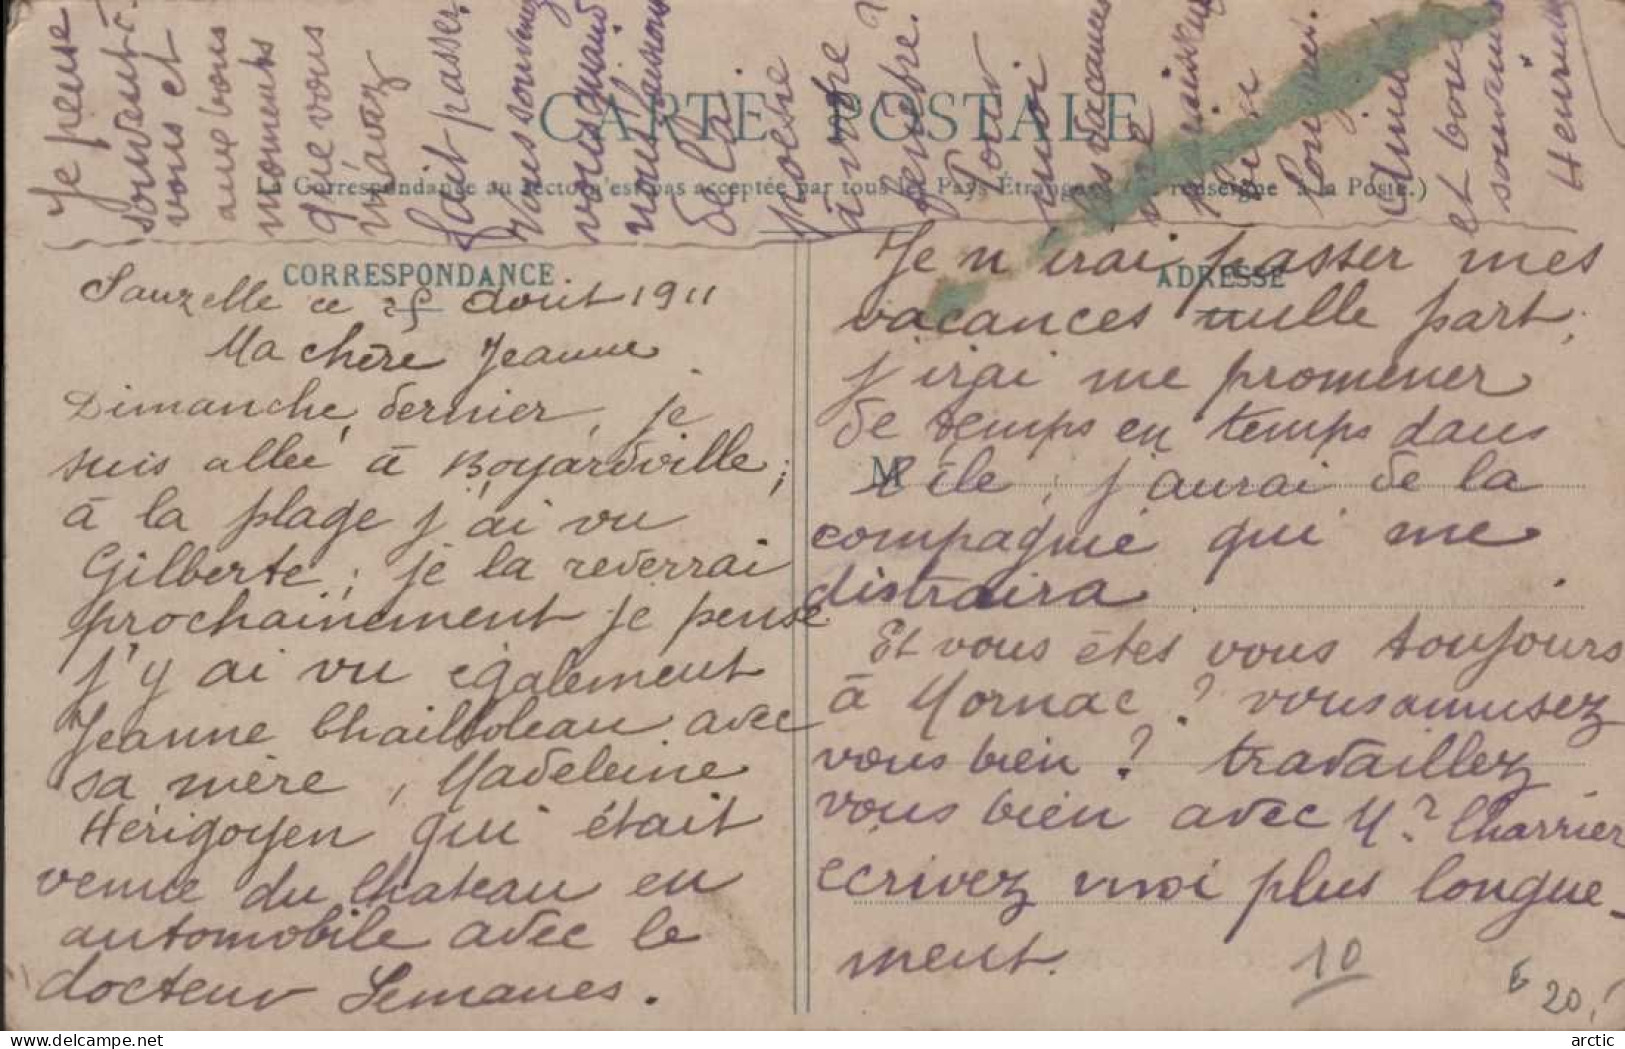 CARTE POSTALE
La Correspondance au recto n'est pas acceptée par tous les Pays Étrangers (Se renseigner à la Poste.)
CORRESPONDANCE
ADRESSE
M
Sauzelle ce 25 Août 1911
Ma chère Jeanne
Dimanche dernier, je
suis allée à Boyardville ;
à la plage j'ai vu
Gilberte ; je la reverrai
prochainement je pense
j'y ai vu également
Jeanne Chailloleau avec
sa mère, Madeleine
Hérigoyen qui était
venue du Chateau en
automobile avec le
docteur Semanes.
Je n'irai passer mes
vacances nulle part,
j'irai me promener
de temps en temps dans
l'île ; j'aurai de la
compagnie qui me
distraira
Et vous êtes vous toujours
à Mornac ? vous amusez
vous bien ? travaillez
vous bien avec Mr Charrier
ecrivez moi plus longue-
ment.
Je pense
souvent à
vous et
aux bons
moments
que vous
m'avez
fait passer.
Vous souvenez
vous quand
nous faisions
de la
poésie
à votre
fenêtre ?
Pour
moi
les vacances
me
paraissent
bien
longues.
Amitiés
et bons
souvenirs
Henriette
10
6
20,
arctic